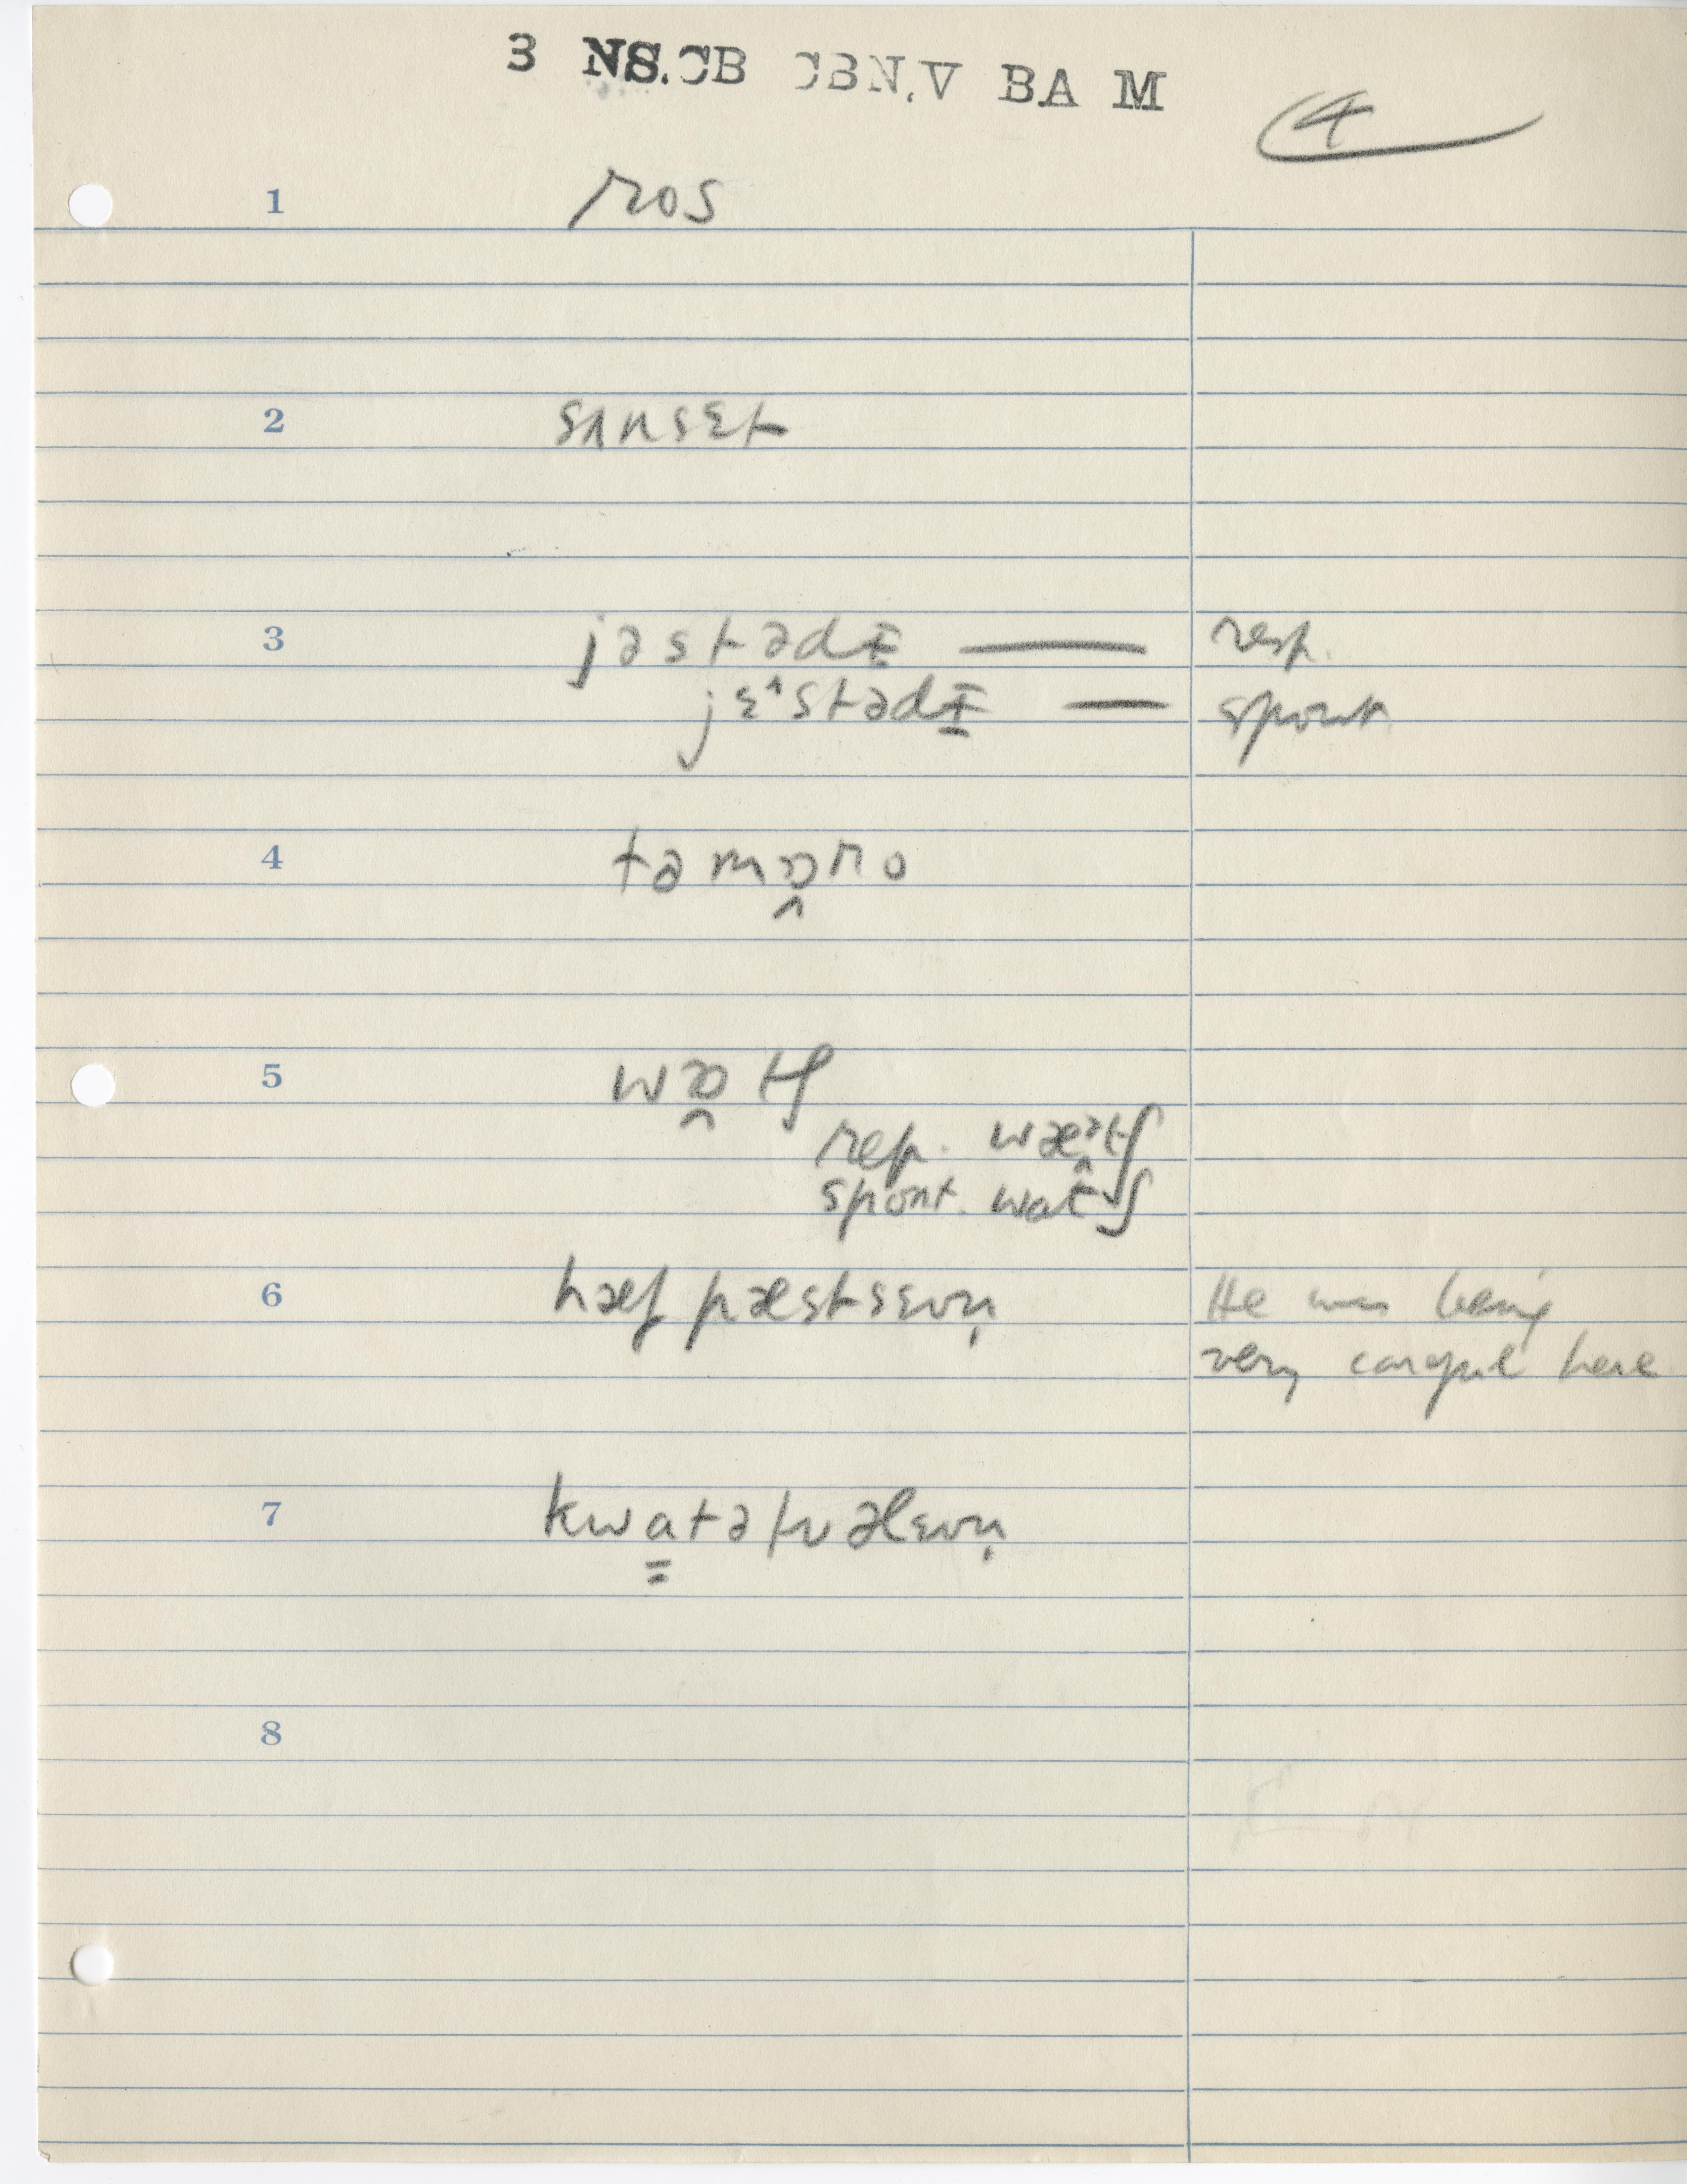 3 NS.CB CBN.V BA M
4
1 ros
2 sʌnsɛt
3 jəstədɪ — resp.
jɛ^stədɪ̱ — spont.
4 təmɒ̭ro
5 wɒ̭tʃ
rep. wæᵊ̭tʃ
spont. watʃ
6 hæf pæstsɛvn̩ He was being
very careful here
7 kwa̳tətvəlɛvn̩
8